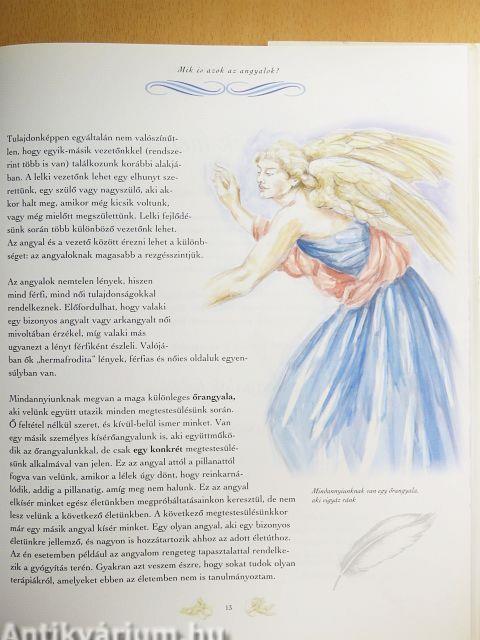 Mik is azok az angyalok?
Tulajdonképpen egyáltalán nem valószínűt-
len, hogy egyik-másik vezetőnkkel (rendsze-
rint több is van) találkozunk korábbi alakjá-
ban. A lelki vezetőnk lehet egy elhunyt sze-
rettünk, egy szülő vagy nagyszülő, aki ak-
kor halt meg, amikor még kicsik voltunk,
vagy még mielőtt megszülettünk. Lelki fejlődé-
sünk során több különböző vezetőnk lehet.
Az angyal és a vezető között érezni lehet a különb-
séget: az angyaloknak magasabb a rezgésszintjük.
Az angyalok nemtelen lények, hiszen
mind férfi, mind női tulajdonságokkal
rendelkeznek. Előfordulhat, hogy valaki
egy bizonyos angyalt vagy arkangyalt női
mivoltában érzékel, míg valaki más
ugyanezt a lényt férfiként észleli. Valójá-
ban ők „hermafrodita" lények, férfias és nőies oldaluk egyen-
súlyban van.
Mindannyiunknak megvan a maga különleges őrangyala,
aki velünk együtt utazik minden megtestesülésünk során.
Ő feltétel nélkül szeret, és kívül-belül ismer minket. Van
egy másik személyes kísérőangyalunk is, aki együttműkö-
dik az őrangyalunkkal, de csak egy konkrét megtestesülé-
sünk alkalmával van jelen. Ez az angyal attól a pillanattól
fogva van velünk, amikor a lélek úgy dönt, hogy reinkarná-
lódik, addig a pillanatig, amíg meg nem halunk. Ez az angyal
elkísér minket egész életünkben megpróbáltatásainkon keresztül, de nem
lesz velünk a következő életünkben. A következő megtestesülésünkkor
már egy másik angyal kísér minket. Egy olyan angyal, aki egy bizonyos
életünkre jellemző, és nagyon is hozzátartozik ahhoz az adott életúthoz.
Az én esetemben például az angyalom rengeteg tapasztalattal rendelke-
zik a gyógyítás terén. Gyakran azt veszem észre, hogy sokat tudok olyan
terápiákról, amelyeket ebben az életemben nem is tanulmányoztam.
Mindannyiunknak van egy őrangyala,
aki vigyáz ránk
13
Antikvárium.hu